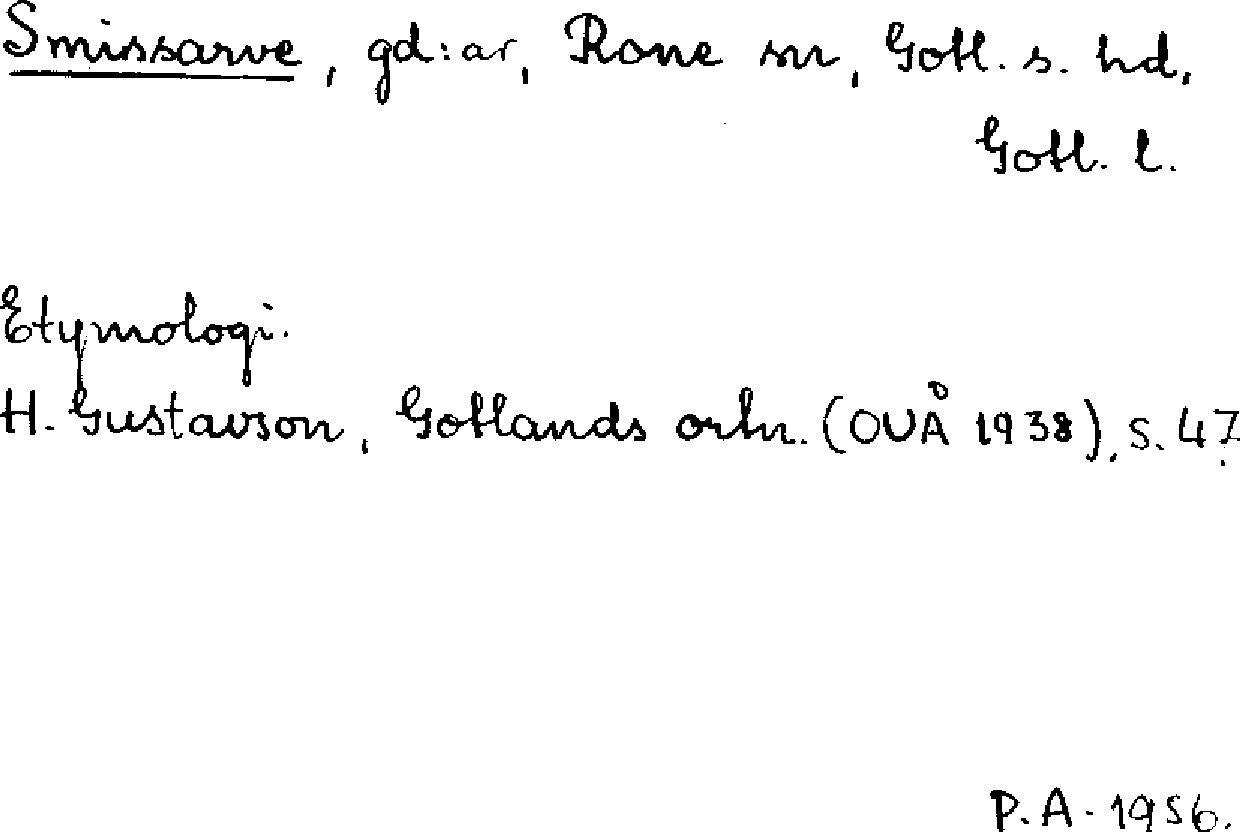 Smissarve, gd:ar, Rone sn, Gotl. s. hd,
Gotl. l.
Etymologi.
H. Gustavson, Gotlands ortn. (OUÅ 1938), s. 47.
P. A. 1956.